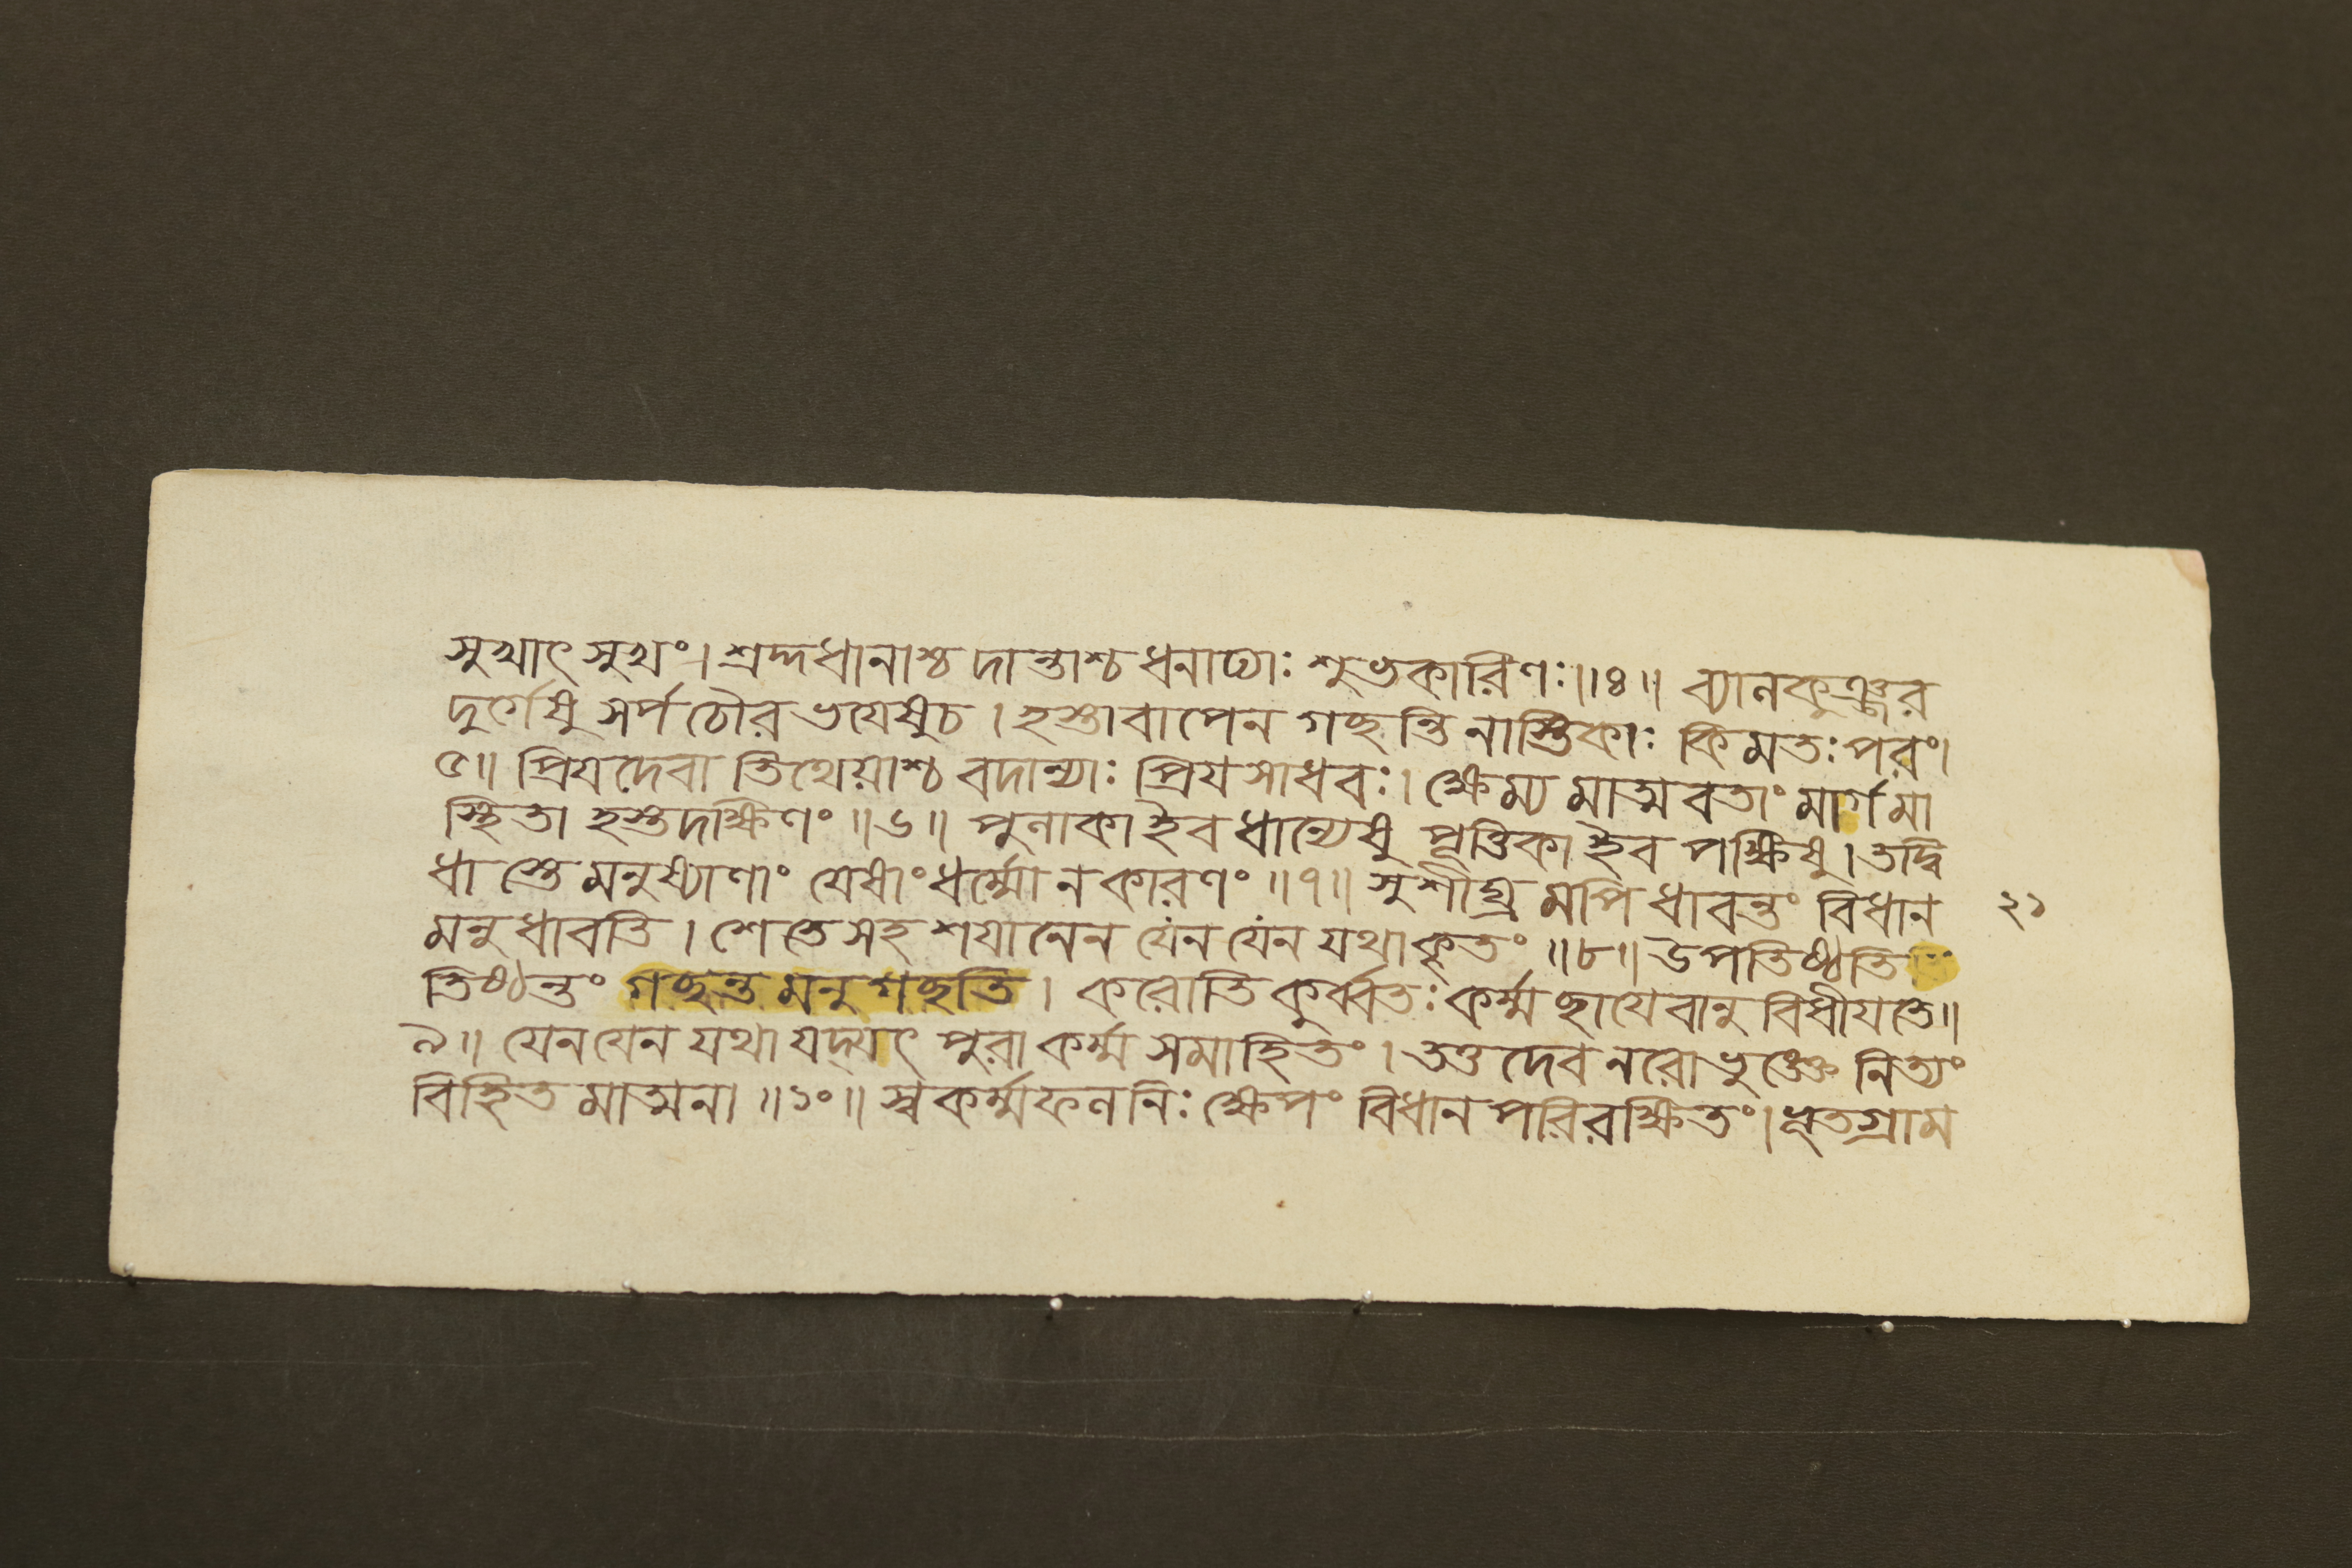 সুখাৎ সুখং। শ্রদ্দধানাশ্চ দান্তাশ্চ ধনাঢ্যাঃ শুভকারিণঃ॥৪॥ ব্যালকুঞ্জর
দুর্গেষু সর্পচৌরভয়েষুচ। হস্তাবাপেন গচ্ছন্তি নাস্তিকাঃ কিমতঃপরং।
৫॥ প্রিয়দেবাতিথেয়াশ্চ বদান্যাঃ প্রিয়সাধবঃ। ক্ষেম্যমাত্মবতাং মার্গমা
স্থিতা হস্তদক্ষিণং॥৬॥ পুলাকাইব ধান্যেষু পূত্তিকাইব পক্ষিষু। তদ্বি
ধাস্তে মনুষ্যাণাং যেষাং ধর্ম্মো ন কারণং॥৭॥ সুশীঘ্রমপি ধাবন্তং বিধান
মনুধাবতি। শেতে সহ শয়ানেন যেন যেন যথা কৃতং॥৮॥ উপতিষ্ঠতি
২১
তিষ্ঠন্তং গচ্ছন্তমনুগচ্ছতি। করোতি কুর্ব্বতঃ কর্ম্ম ছায়েবানুবিধীয়তে॥
৯॥ যেন যেন যথা যদ্যৎ পুরা কর্ম্ম সমাহিতং। তত্তদেব নরো ভুঙ্ক্তে নিত্যং
বিহিতমাত্মনা॥১০॥ স্বকর্ম্মফলনিঃক্ষেপং বিধানপরিরক্ষিতং। ভূতগ্রাম